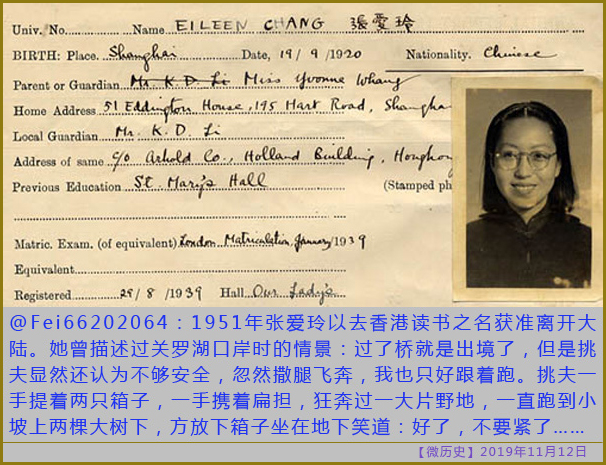 Univ. No. Name EILEEN CHANG 張愛玲
BIRTH: Place. Shanghai Date, 19/9/1920 Nationality. Chinese
Parent or Guardian Mr. K. D. Li Miss Yvonne Whang
Home Address 51 Eddington House, 195 Hart Road, Shangha
Local Guardian Mr. K. D. Li
Address of same c/o Arhold Co., Holland Building, Hongkong
Previous Education St. Mary's Hall (Stamped ph
Matric. Exam. (of equivalent) London Matriculation, January 1939
Equivalent
Registered 29/8/1939 Hall Our Lady's
@Fei66202064：1951年张爱玲以去香港读书之名获准离开大
陆。她曾描述过关罗湖口岸时的情景：过了桥就是出境了，但是挑
夫显然还认为不够安全，忽然撒腿飞奔，我也只好跟着跑。挑夫一
手提着两只箱子，一手携着扁担，狂奔过一大片野地，一直跑到小
坡上两棵大树下，方放下箱子坐在地下笑道：好了，不要紧了……
【微历史】2019年11月12日